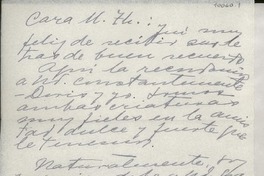 Cara M. Th.:
feliz de recibir sus le-
tras de buen recuerdo
Aquí la recordamos
constantemente
- Doris y yo. Somos
ambas criaturas
muy fieles en la amis-
tad dulce y fuerte que le
tenemos.
Naturalmente,